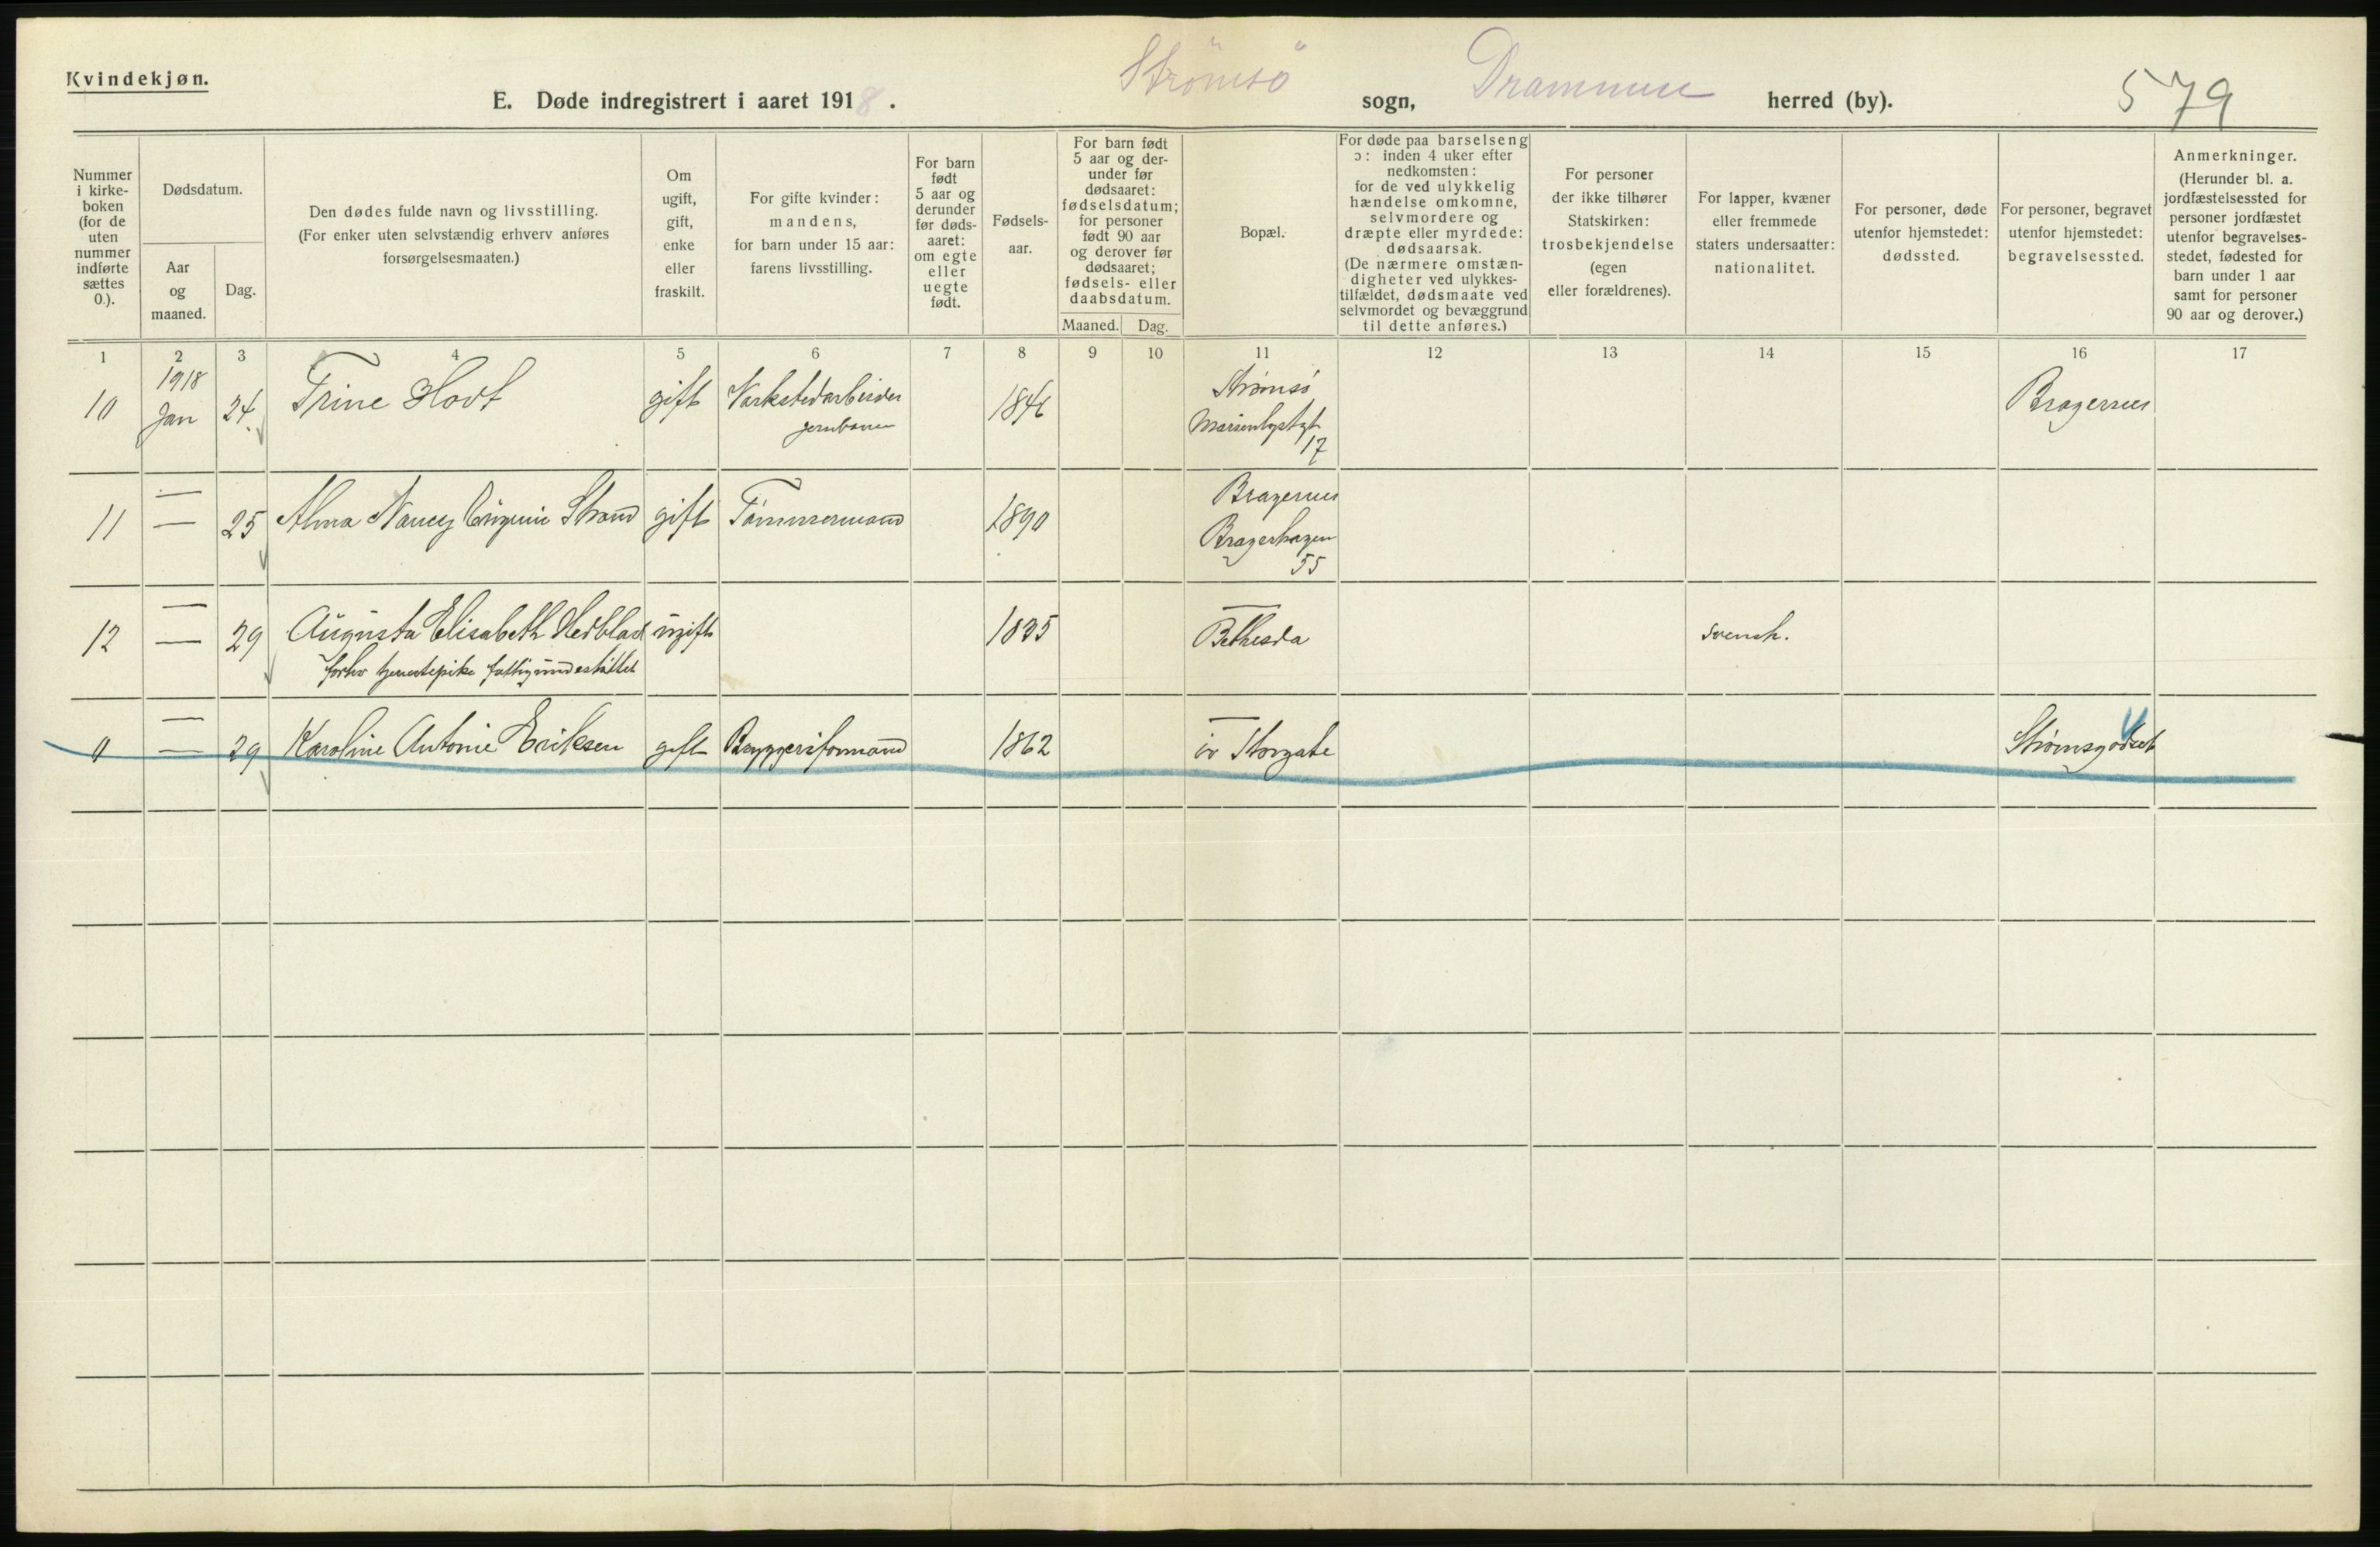 Kvindekjøn.
E. Døde indregistrert i aaret 1918.
Strömsö sogn, Drammen herred (by).
579
Nummer i kirke- boken (for de uten nummer indførte sættes 0.).
Dødsdatum.
Aar og maaned.
Dag.
Den dødes fulde navn og livsstilling.
(For enker uten selvstændig erhverv anføres
forsørgelsesmaaten.)
Om ugift, gift, enke eller fraskilt.
For gifte kvinder:
mandens,
for barn under 15 aar:
farens livsstilling.
For barn født 5 aar og derunder før døds- aaret: om egte eller uegte født.
Fødsels- aar.
For barn født 5 aar og der- under før dødsaaret: fødselsdatum; for personer født 90 aar og derover før dødsaaret; fødsels- eller daabsdatum.
Maaned.
Dag.
Bopæl.
For døde paa barselseng
ɔ: inden 4 uker efter
nedkomsten:
for de ved ulykkelig
hændelse omkomne,
selvmordere og
dræpte eller myrdede:
dødsaarsak.
(De nærmere omstæn-
digheter ved ulykkes-
tilfældet, dødsmaate ved
selvmordet og bevæggrund
til dette anføres.)
For personer
der ikke tilhører
Statskirken:
trosbekjendelse
(egen
eller forældrenes).
For lapper, kvæner
eller fremmede
staters undersaatter:
nationalitet.
For personer, døde
utenfor hjemstedet:
dødssted.
For personer, begravet
utenfor hjemstedet:
begravelsessted.
Anmerkninger.
(Herunder bl. a.
jordfæstelsessted for
personer jordfæstet
utenfor begravelses-
stedet, fødested for
barn under 1 aar
samt for personer
90 aar og derover.)
1 2 3 4 5 6 7 8 9 10 11 12 13 14 15 16 17
1918
10 Jan 24 Trine Hovt gift Verkstedarbeider jernbanen 1846 Strømsø Marienlystgt 17 Bragernes
—
11 — 25 Alma Nancy Eugenie Strand gift Tömmermand 1890 Bragernes Bragerhagen 55
—
12 — 29 Augusta Elisabeth Hedblad ugift 1835 — Bethesda svensk.
forhv tjenestepike fattigunderstöttet
—
0 — 29 Karoline Antonie Eriksen gift Bryggeriformand 1862 — øv Storgate Strømsgodset